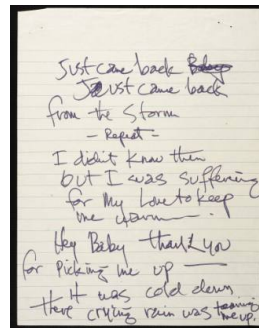 Just came back Baby
Just came back
from the Storm
— Repeat —
I didn't know then
but I was suffering
for My Love to keep
me warm
Hey Baby thank you
for Picking me up —
It was cold down
there crying rain was tearing
me up.